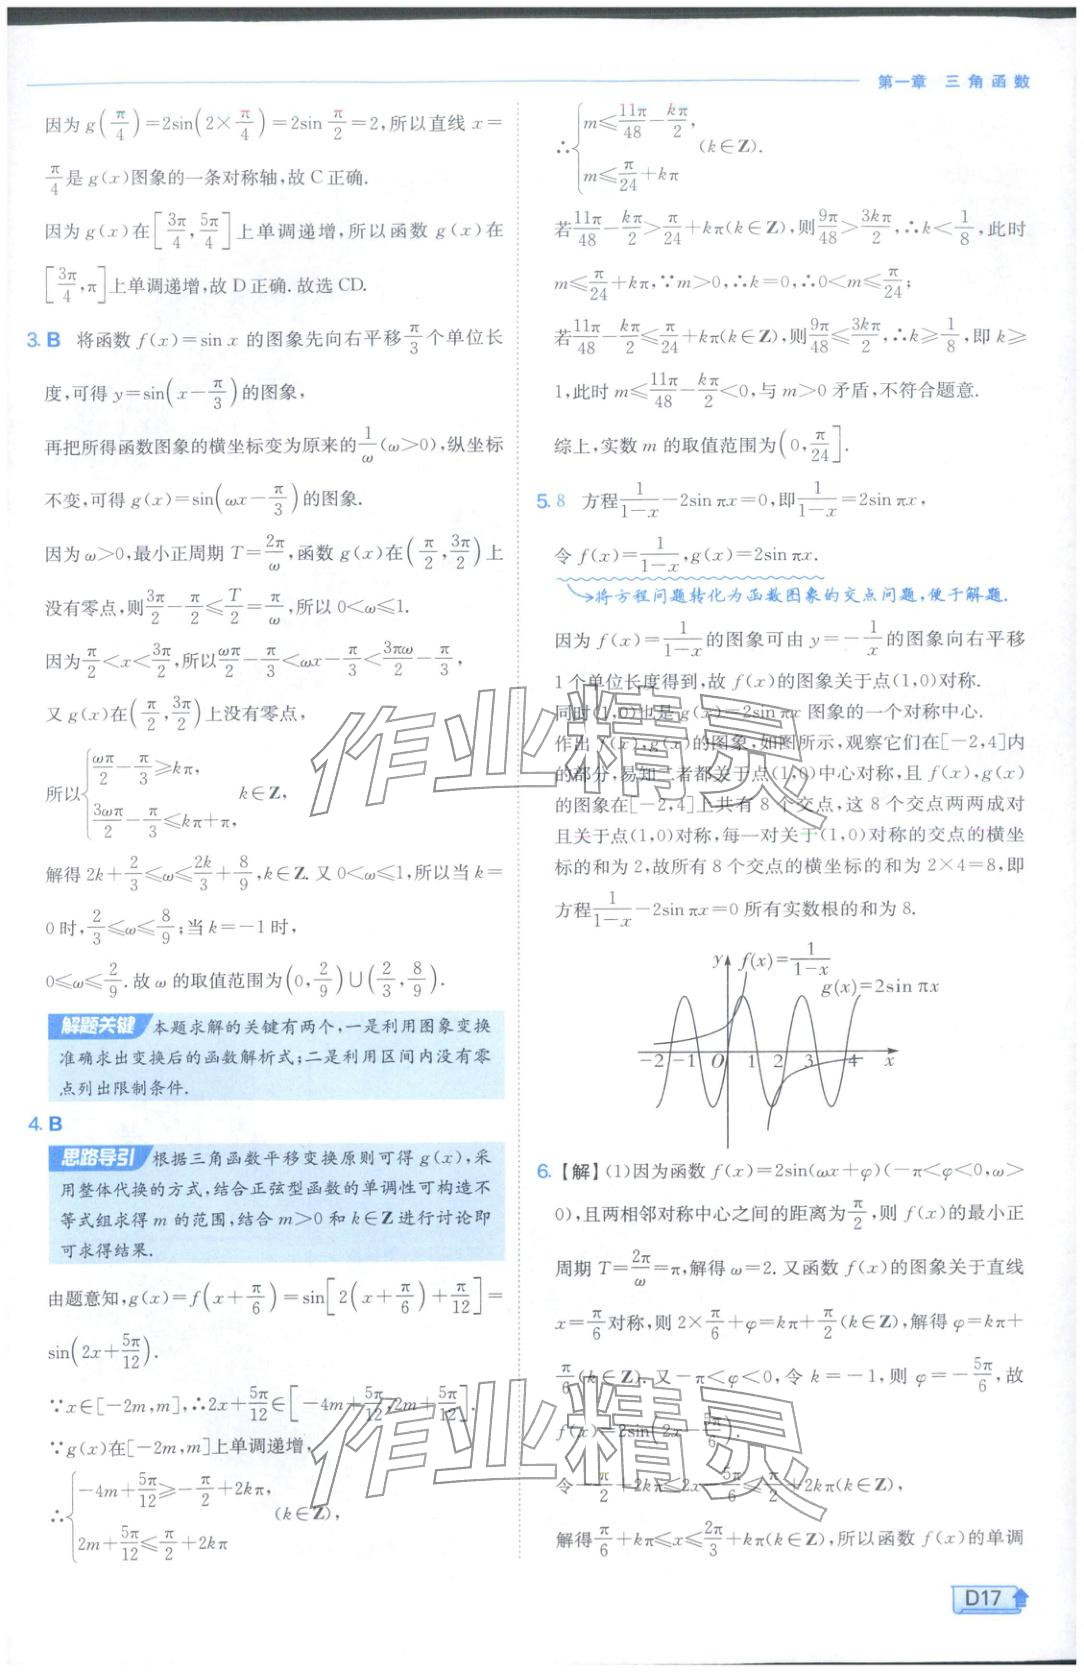 第一章 三角函数
因为 g(π/4)=2sin(2×π/4)=2sin π/2=2,所以直线 x=
π/4是 g(x)图象的一条对称轴,故 C 正确.
因为 g(x)在[3π/4,5π/4]上单调递增,所以函数 g(x)在
[3π/4,π]上单调递增,故 D 正确.故选 CD.
3. B 将函数 f(x)=sin x 的图象先向右平移π/3个单位长
度,可得 y=sin(x-π/3)的图象,
再把所得函数图象的横坐标变为原来的1/ω(ω>0),纵坐标
不变,可得 g(x)=sin(ωx-π/3)的图象.
因为 ω>0,最小正周期 T=2π/ω,函数 g(x)在(π/2,3π/2)上
没有零点,则3π/2-π/2≤T/2=π/ω,所以 0<ω≤1.
因为π/2<x<3π/2,所以ωπ/2-π/3<ωx-π/3<3πω/2-π/3,
又 g(x)在(π/2,3π/2)上没有零点,
所以{ωπ/2-π/3≥kπ,
3ωπ/2-π/3≤kπ+π, k∈Z,
解得 2k+2/3≤ω≤2k/3+8/9,k∈Z.又 0<ω≤1,所以当 k=
0 时,2/3≤ω≤8/9;当 k=-1 时,
0≤ω≤2/9.故 ω 的取值范围为(0,2/9)∪(2/3,8/9).
解题关键 本题求解的关键有两个,一是利用图象变换
准确求出变换后的函数解析式;二是利用区间内没有零
点列出限制条件.
4. B
思路导引 根据三角函数平移变换原则可得 g(x),采
用整体代换的方式,结合正弦型函数的单调性可构造不
等式组求得 m 的范围,结合 m>0 和 k∈Z 进行讨论即
可求得结果.
由题意知,g(x)=f(x+π/6)=sin[2(x+π/6)+π/12]=
sin(2x+5π/12).
∵x∈[-2m,m],∴2x+5π/12∈[-4m+5π/12,2m+5π/12].
∵g(x)在[-2m,m]上单调递增,
∴{-4m+5π/12≥-π/2+2kπ,
2m+5π/12≤π/2+2kπ (k∈Z),
∴{m≤11π/48-kπ/2,
m≤π/24+kπ (k∈Z).
若11π/48-kπ/2>π/24+kπ(k∈Z),则9π/48>3kπ/2,∴k<1/8,此时
m≤π/24+kπ,∵m>0,∴k=0,∴0<m≤π/24;
若11π/48-kπ/2≤π/24+kπ(k∈Z),则9π/48≤3kπ/2,∴k≥1/8,即 k≥
1,此时 m≤11π/48-kπ/2<0,与 m>0 矛盾,不符合题意.
综上,实数 m 的取值范围为(0,π/24].
5. 8 方程1/(1-x)-2sin πx=0,即1/(1-x)=2sin πx,
令 f(x)=1/(1-x),g(x)=2sin πx.
将方程问题转化为函数图象的交点问题,便于解题.
因为 f(x)=1/(1-x)的图象可由 y=-1/x的图象向右平移
1 个单位长度得到,故 f(x)的图象关于点(1,0)对称.
同时(1,0)也是 g(x)=2sin πx 图象的一个对称中心.
作出 f(x),g(x)的图象,如图所示,观察它们在[-2,4]内
的部分,易知二者都关于点(1,0)中心对称,且 f(x),g(x)
的图象在[-2,4]上共有 8 个交点,这 8 个交点两两成对
且关于点(1,0)对称,每一对关于(1,0)对称的交点的横坐
标的和为 2,故所有 8 个交点的横坐标的和为 2×4=8,即
方程1/(1-x)-2sin πx=0 所有实数根的和为 8.
y f(x)=1/(1-x)
g(x)=2sin πx
-2 -1 O 1 2 3 4 x
6.【解】(1)因为函数 f(x)=2sin(ωx+φ)(-π<φ<0,ω>
0),且两相邻对称中心之间的距离为π/2,则 f(x)的最小正
周期 T=2π/ω=π,解得 ω=2.又函数 f(x)的图象关于直线
x=π/6对称,则 2×π/6+φ=kπ+π/2(k∈Z),解得 φ=kπ+
π/6(k∈Z).又-π<φ<0,令 k=-1,则 φ=-5π/6,故
f(x)=2sin(2x-5π/6).
令-π/2+2kπ≤2x-5π/6≤π/2+2kπ(k∈Z),
解得π/6+kπ≤x≤2π/3+kπ(k∈Z),所以函数 f(x)的单调
D17
作业精灵
作业精灵